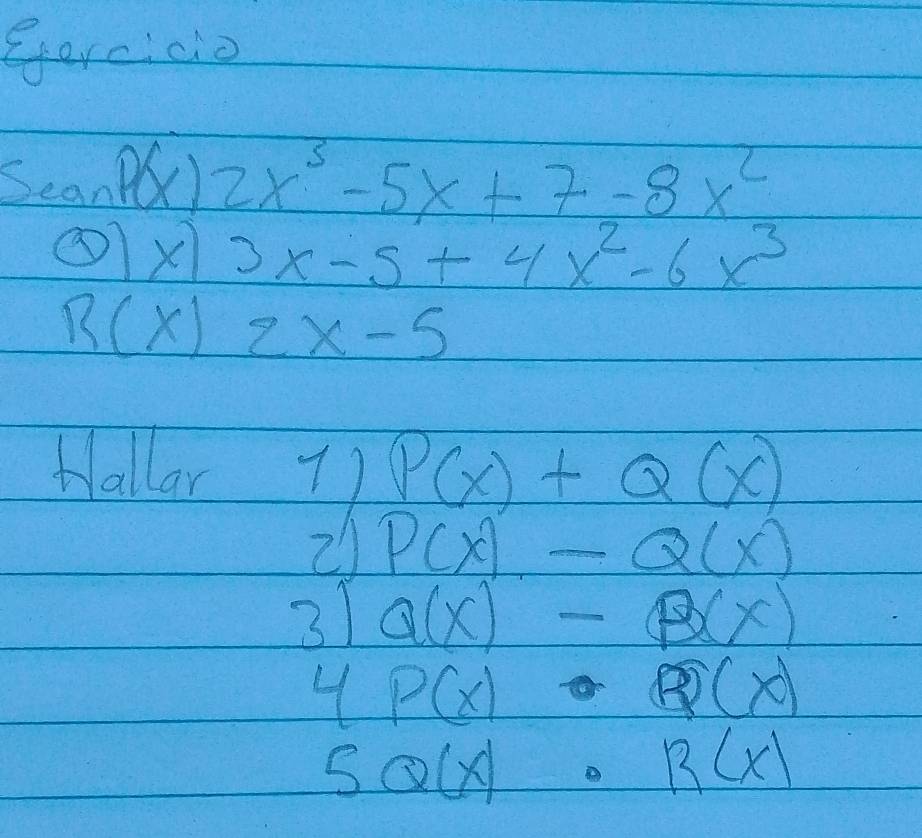 Ejercicio
Sean P(x) 2x³ - 5x + 7 - 8x²
Q)x) 3x - 5 + 4x² - 6x³
R(x) 2x - 5
Hallar 1) P(x) + Q(x)
2) P(x) - Q(x)
3) Q(x) - R(x)
4 P(x) • R(x)
5 Q(x) • R(x)